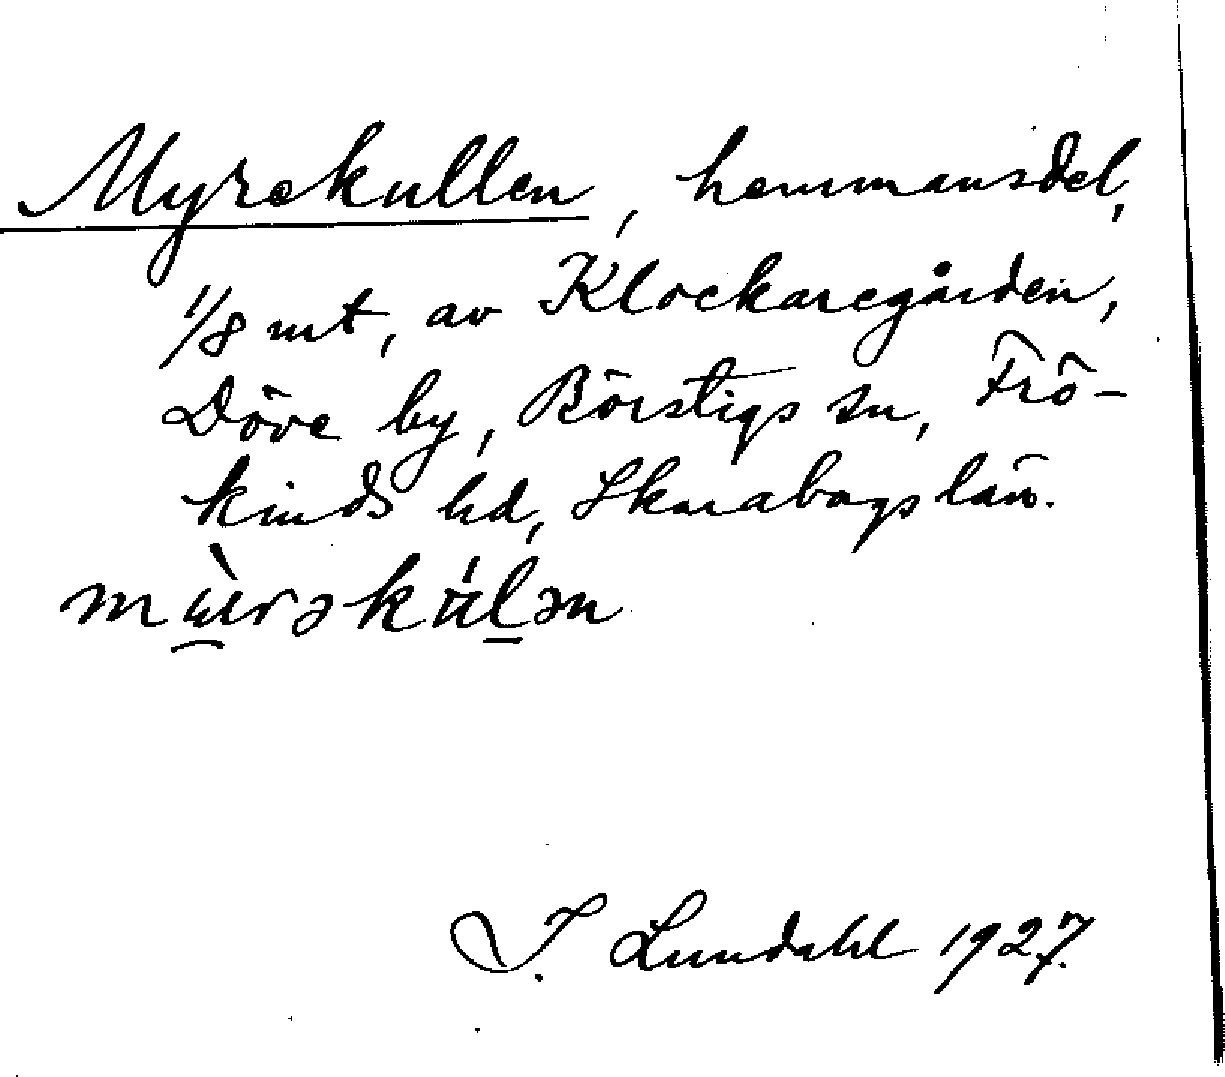 Myrekullen, hemmansdel,
1/8 mt, av Klockaregården,
Döve by, Börstigs sn, Frö-
kinds hd, Skarabogs län.
J. Lundahl 1927.